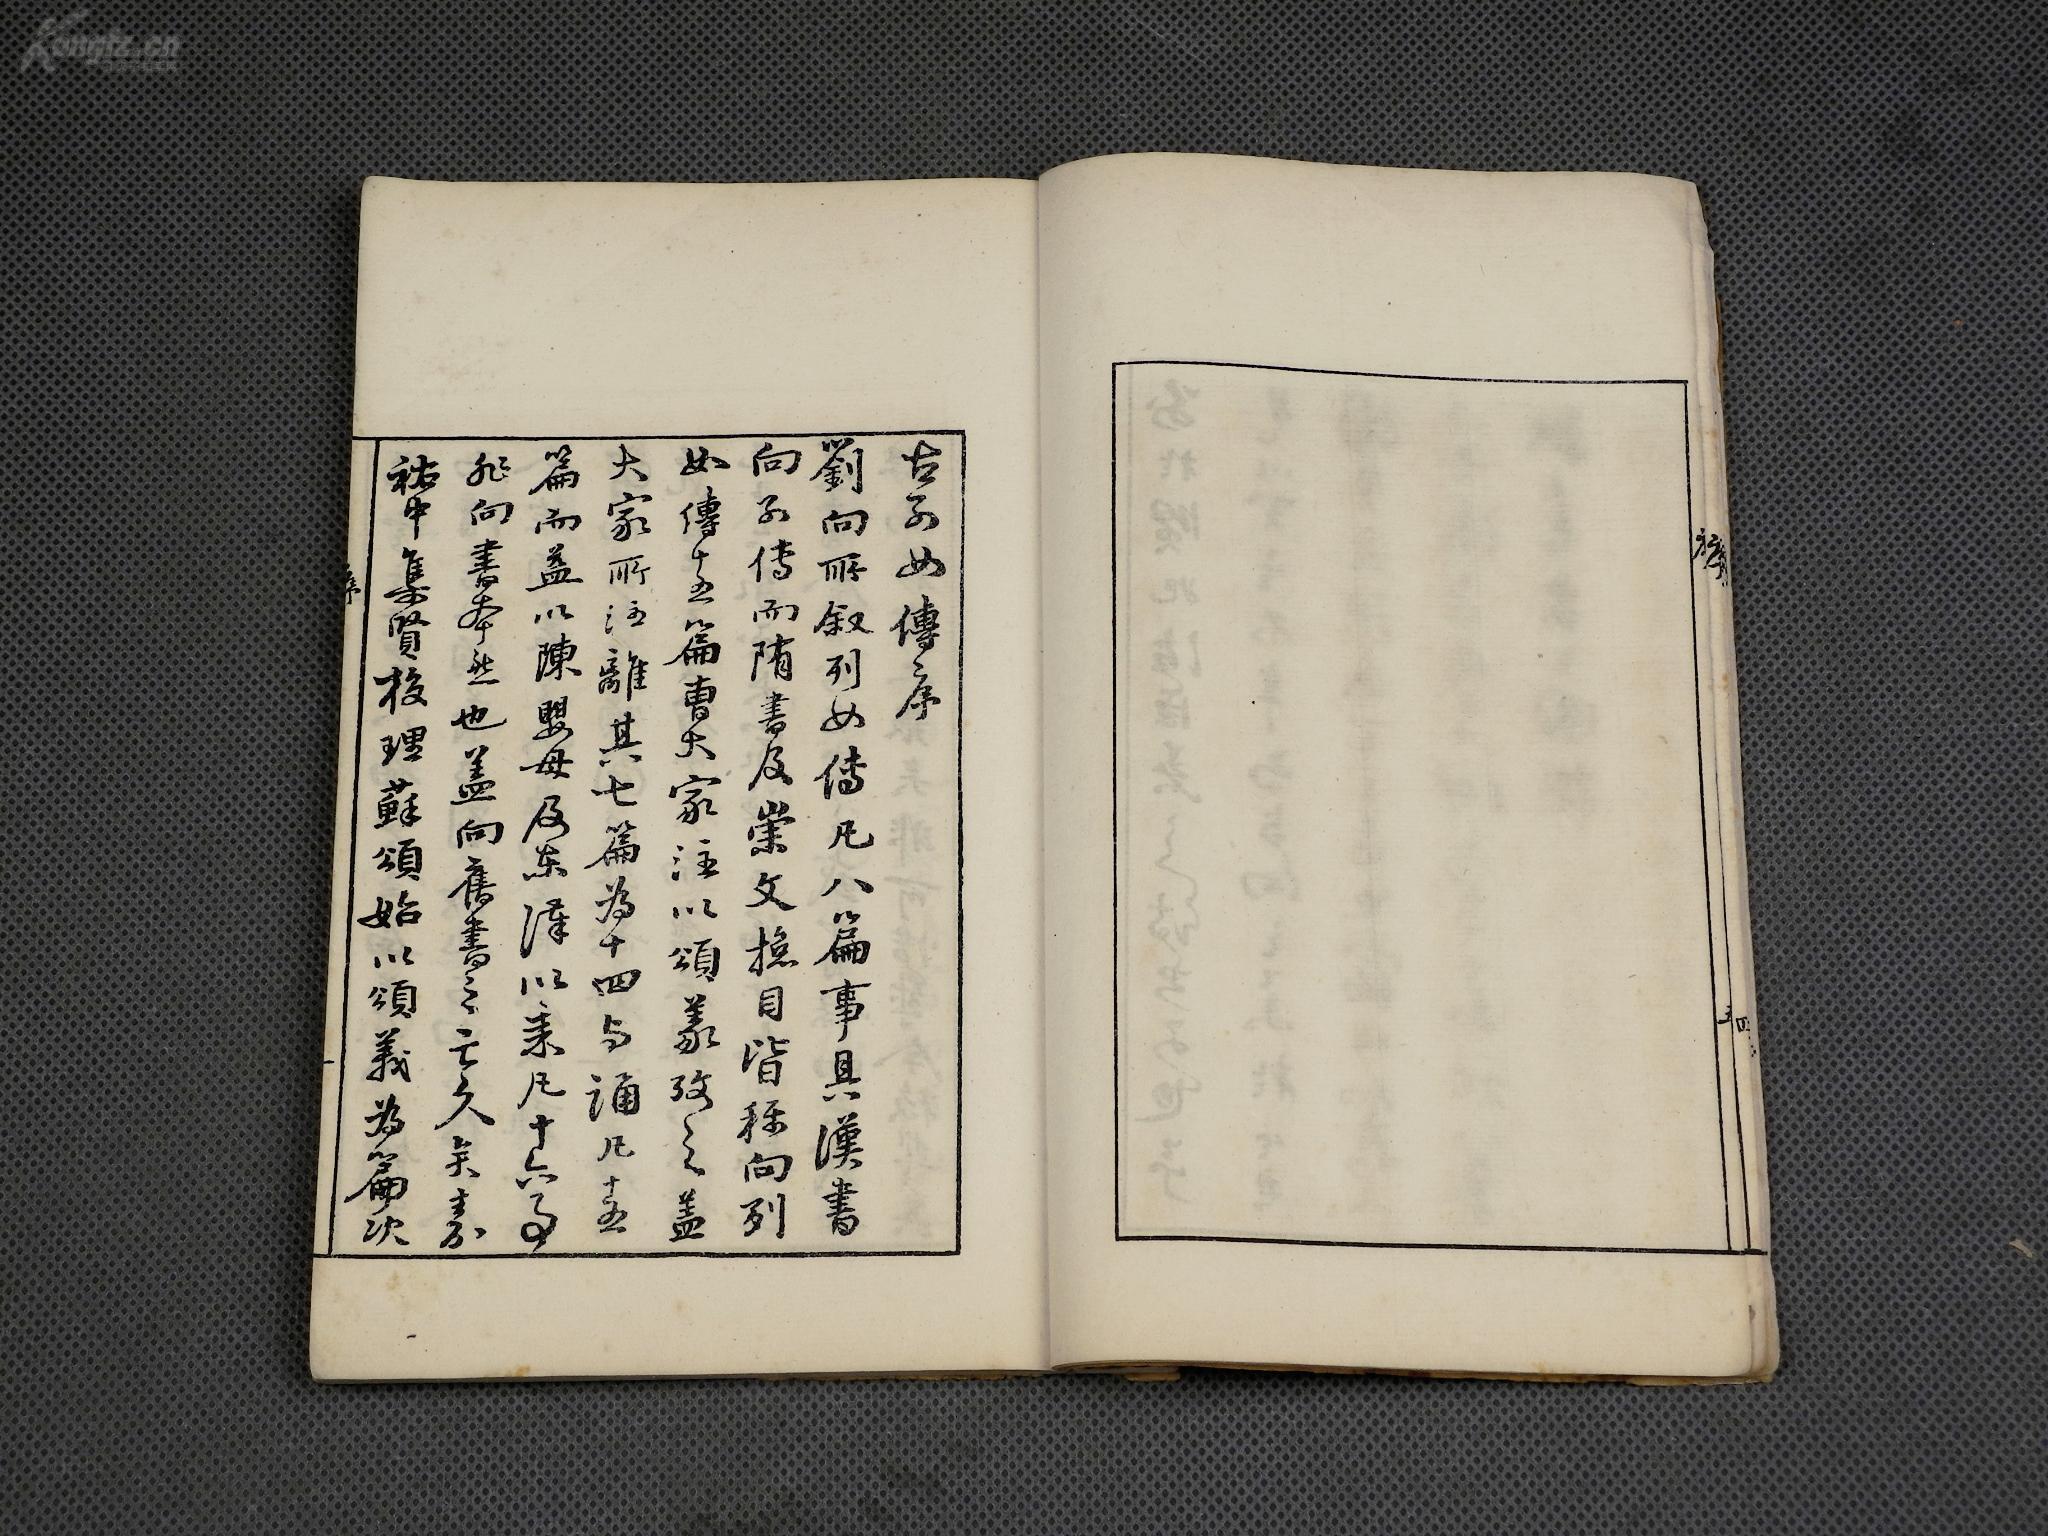 序
五
四
古列女傳序
劉向所叙列女傳凡八篇事具漢書
向列傳而隋書及崇文揔目皆稱向列
女傳十五篇曹大家注以頌義攷之盖
大家所注離其七篇為十四与誦凡十五
篇而益以陳嬰母及東漢以来凡十六事
非向書本然也盖向舊書之亡久矣嘉
祐中集賢校理蘇頌始以頌義為篇次
序
一
Kongfz.cn